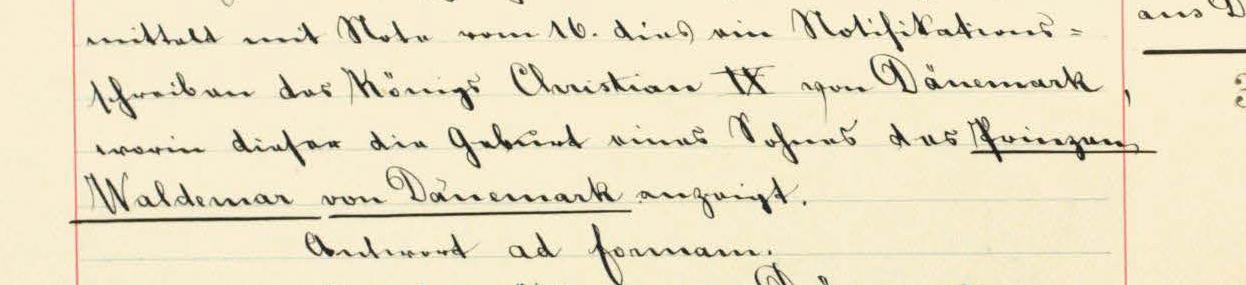 mittelt mit Note vom 16. dies ein Notifikations=
schreiben des Königs Christian IX von Dänemark,
worin dieser die Geburt eines Sohnes des Prinzen
Waldemar von Dänemark anzeigt.
Antwort ad formam.
aus D